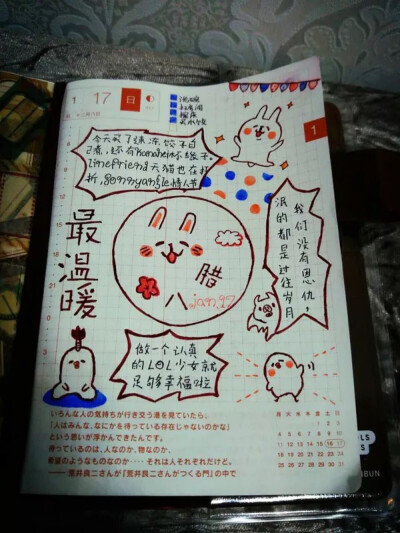 1 17 日
今天买了速冻饺子自
己煮,还有
linefriend天猫也在打
折,
最温暖
腊
八
jan.17
我们没有恩仇,
泯的都是过往岁月
做一个认真
的LOL少女就
足够幸福啦
1
いろんな人の気持ちが行き交う港を見ていたら、
「人はみんな、なにかを待っている存在じゃないのかな」
という思いが浮かんできたんです。
待っているのは、人なのか、物なのか、
希望のようなものなのか‥‥‥それは人それぞれだけど。
——荒井良二さんが『荒井良二さんがつくる門』の中で
月 火 水 木 金 土 日
1 2 3
4 5 6 7 8 9 10
11 12 13 14 15 16 17
18 19 20 21 22 23 24
25 26 27 28 29 30 31